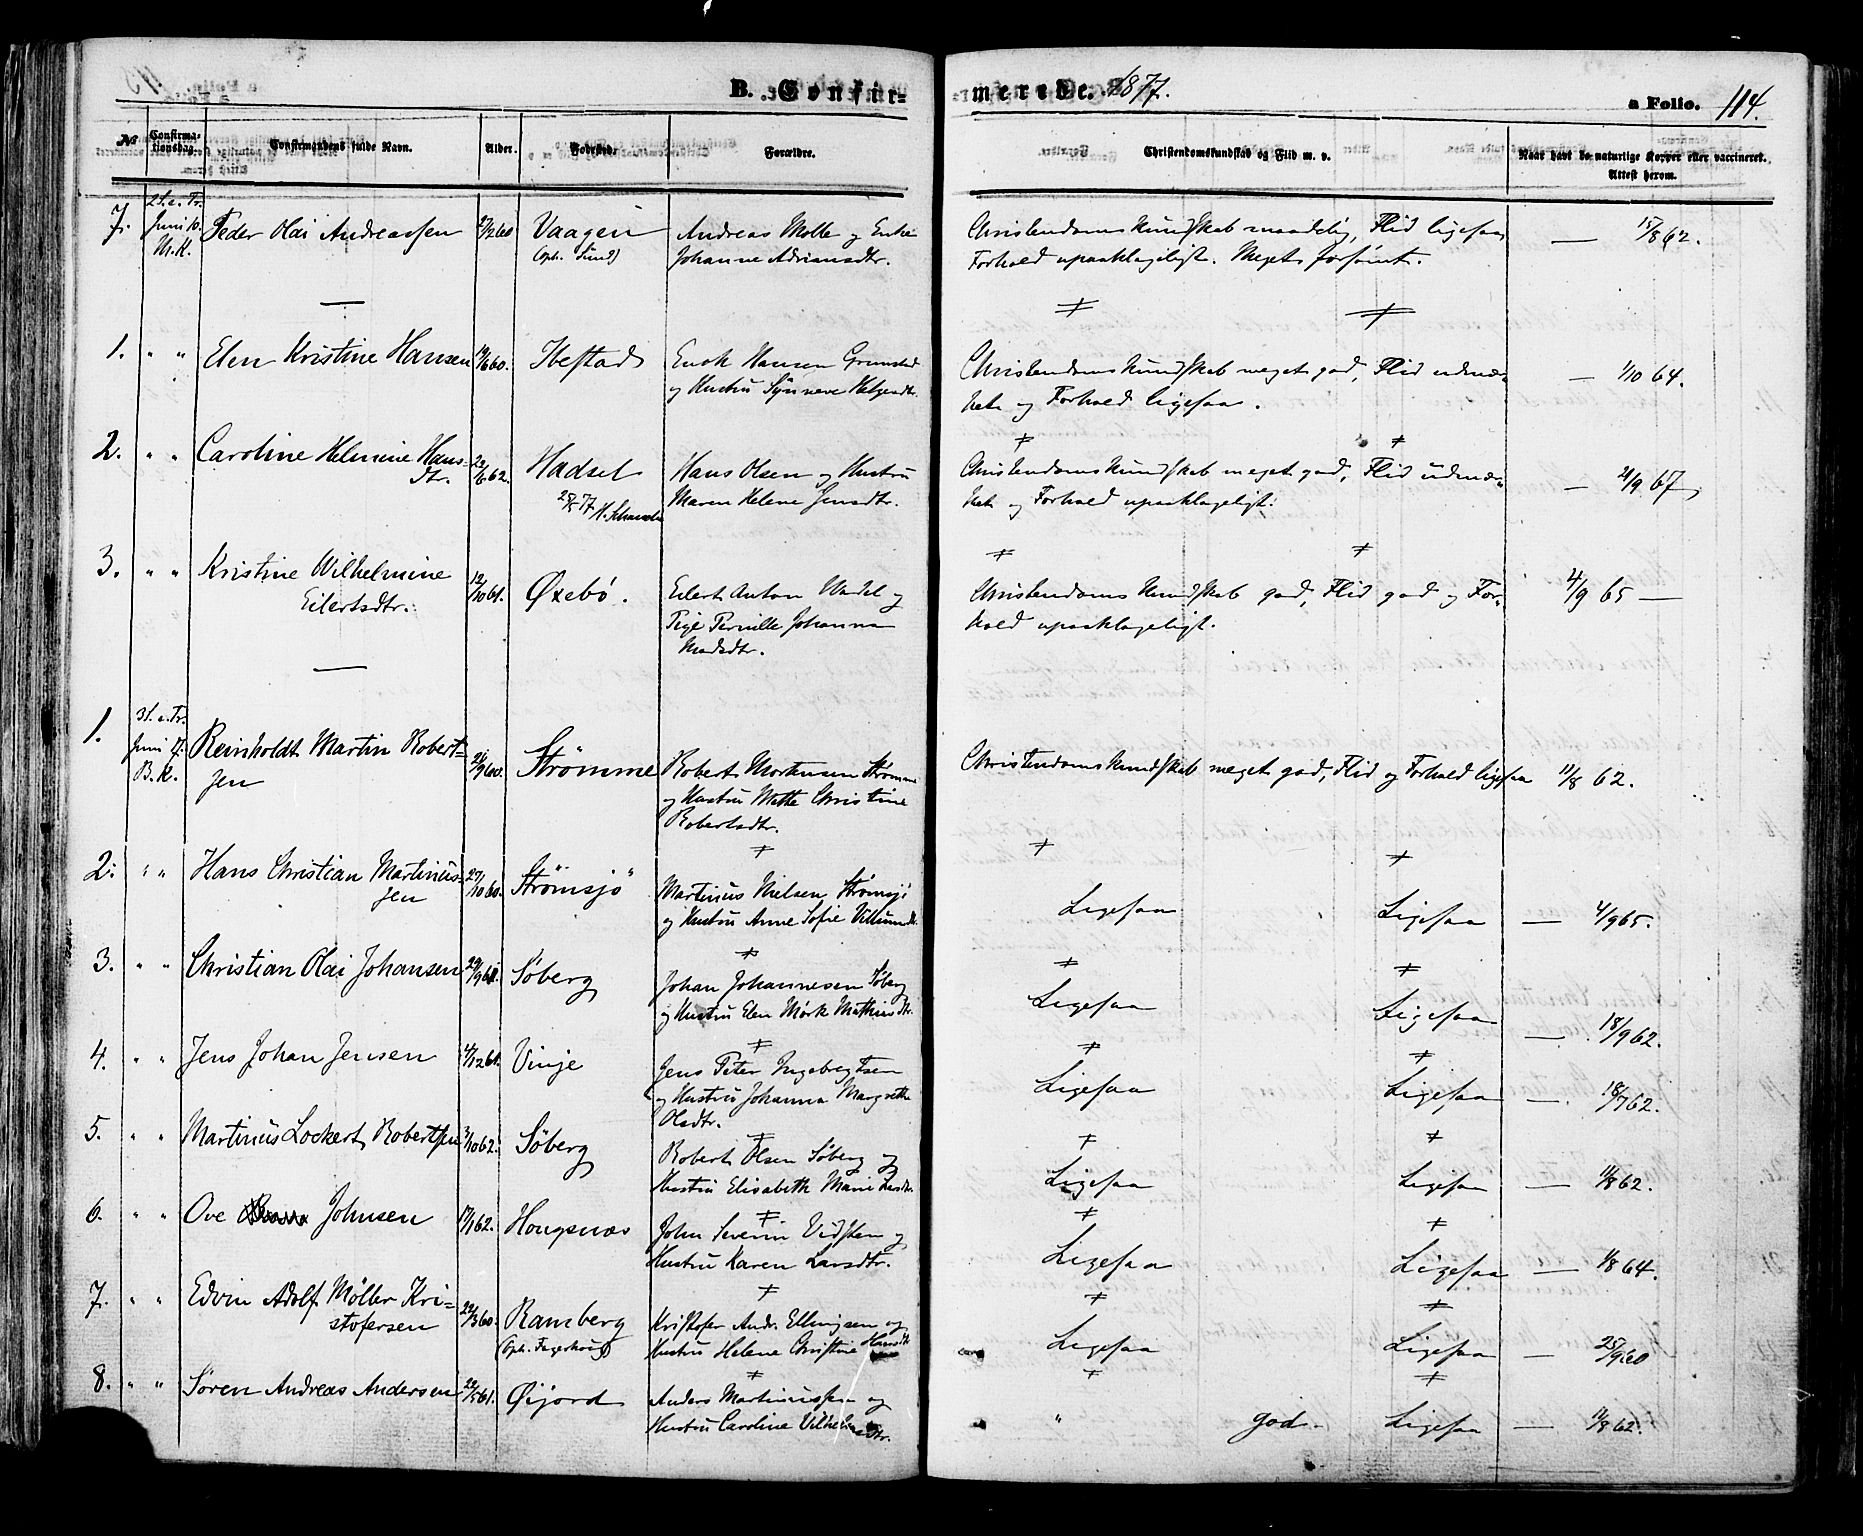 B. Confir-
merede. 1877.
a Folio. 114.
№ Confirma-tionsdag. Confirmandens fulde Navn. Alder. Fødested. Forældre. Christendomskundskab og Flid m. v. Naar havt de naturlige Kopper eller vaccineret. Attest herom.
2 S. e. Tr.
7. Juni 10. Peder Olai Andreassen 2/2 60 Vaagen Andreas Molle og Enke Christendomskundskab maadelig, Flid ligesaa — 15/8 62.
M. K. (oph. Sund) Johanne Adriansdtr. Forhold upaaklageligt. Meget forsømt.
—
1. " " Elen Kristine Hansen 19/6 60. Ibestad Enok Hansen Grunstad Christendomskundskab meget god, Flid udmær- — 1/10 64.
og Hustru Synneve Helgesdtr. ket og Forhold ligesaa.
2. " " Caroline Helmine Hans- 22/6 62. Hadsel Hans Olsen og Hustru Christendomskundskab meget god, Flid udmær- — 21/9 67
dtr. Maren Helene Jensdtr. ket og Forhold upaaklageligt.
3. " " Kristine Wilhelmine 12/10 61. Øxebø. Eilert Anton Hadel og Christendomskundskab god, Flid god og For- 4/9 65 —
Eilertsdtr. Pige Pernille Johanna hold upaaklageligt.
Madsdtr.
—
3 S. e. Tr.
1. Juni 17. Reinholdt Martin Robert- 21/9 60. Strømme Robert Mortensen Strømme Christendomskundskab meget god, Flid og Forhold ligesaa 11/8 62.
B. K. sen og Hustru Mette Christine
Robertsdtr.
2. " " Hans Christian Martinus- 27/10 60. Strømsjø Martinus Nielsen Strømsjø Ligesaa Ligesaa — 4/9 65.
sen og Hustru Anne Sofie
3. " " Christian Olai Johansen 29/9 61. Søberg Johan Johannesen Søberg Ligesaa Ligesaa — 18/9 62.
og Hustru Elen Mørk Mathiasdtr.
4. " " Jens Johan Jensen 4/12 61. Vinje Jens Peter Ingebregtsen Ligesaa Ligesaa — 18/7 62.
og Hustru Johanna Margrethe
Olsdtr.
5. " " Martinus Lockert Robertsen 3/10 62. Søberg Robert Olsen Søberg og Ligesaa Ligesaa — 11/8 62.
Hustru Elisabeth Marie Larsdtr.
6. " " Ove Johnsen 17/1 62. Hongsnæs John Severin Vidsten og Ligesaa Ligesaa — 1/8 64.
Hustru Karen Larsdtr.
7. " " Edvin Adolf Møller Kri- 29/3 60. Ramberg Kristofer Andr. Ellingsen og Ligesaa Ligesaa — 25/9 60
stofersen (Oph. Fagerhoug) Hustru Helene Christine Hansdtr.
8. " " Søren Andreas Andersen 22/5 61. Øijord Anders Martinussen og " god. Ligesaa — 11/8 62.
Hustru Caroline